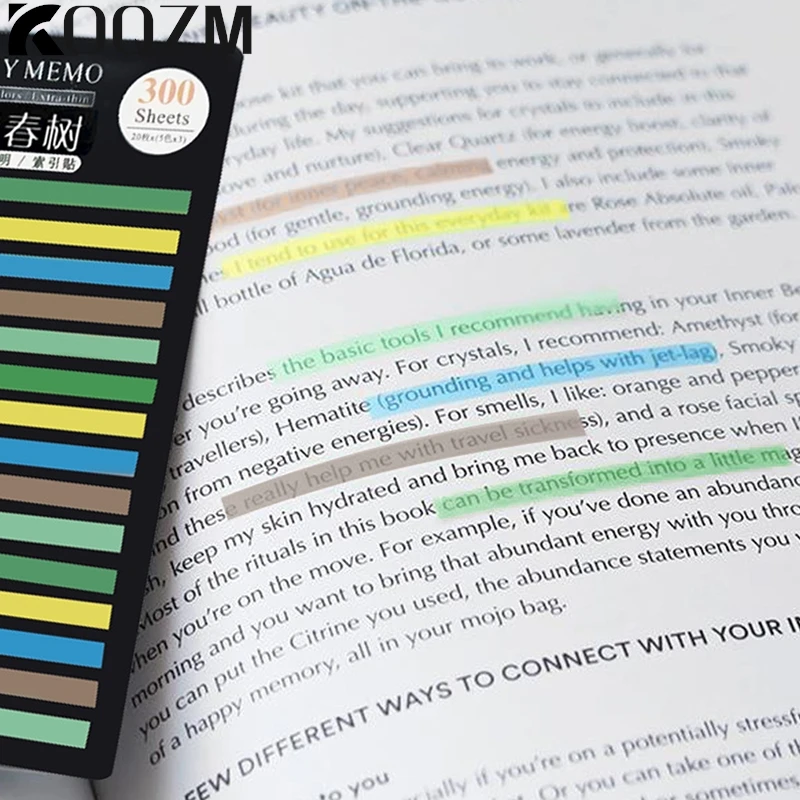 KOOZM
Y MEMO
lors / Extra-thin
300
Sheets
20枚x(5色x3)
春树
明 / 索引貼
BEAUTY ON THE
ose kit that you can bring to work, or generally for
during the day, supporting you to stay connected to that
ryday life. My suggestions for crystals to include in this
ove and nurture), Clear Quartz (for energy boost, clarity of
yst (for inner peace, calming energy and protection), Smoky
od (for gentle, grounding energy). I also include some inner
nes I tend to use for this everyday kit are Rose Absolute oil, Palo
ll bottle of Agua de Florida, or some lavender from the garden.
describes the basic tools I recommend having in your Inner Be
er you're going away. For crystals, I recommend: Amethyst (for
travellers), Hematite (grounding and helps with jet-lag), Smoky
on from negative energies). For smells, I like: orange and pepper
nd these really help me with travel sickness), and a rose facial sp
sh, keep my skin hydrated and bring me back to presence when I
Most of the rituals in this book can be transformed into a little mag
hen you're on the move. For example, if you've done an abundanc
morning and you want to bring that abundant energy with you thro
you can put the Citrine you used, the abundance statements you w
of a happy memory, all in your mojo bag.
FEW DIFFERENT WAYS TO CONNECT WITH YOUR I
to you
cially if you're on a potentially stressf
Or you can take one of th
sometimes